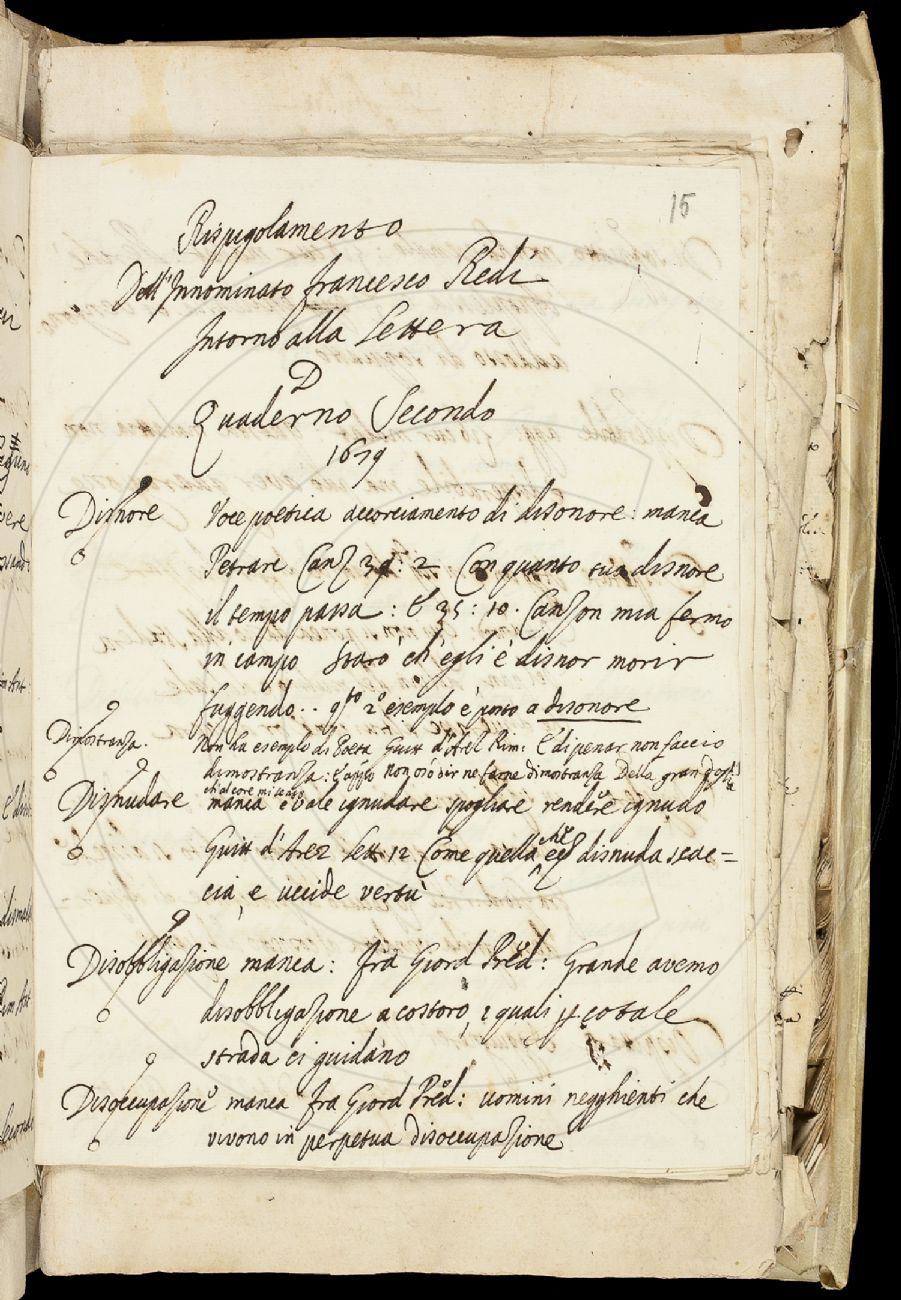 15
Rispigolamento
Dell'Innominato Francesco Redi
Intorno alla Lettera
D
Quaderno Secondo
1679
Disnore Voce poetica accorciamento di disonore: manca
Petrarc Canz 39: 2 Con quanto tuo disnore
il tempo passa: E 35: 10. Canzon mia fermo
in campo starò ch'egli è disnor morir
fuggendo.. qsto 2° esempio è posto a disonore
Dimostranza. Non ha esemplo di Poeta Guitt d'Arez Rim: E di penar non faccio
dimostranza: E appo non osò dir ne farne dimostranza Della gran
ch'al core mi
Disnudare manca e vale ignudare spogliare rendere ignudo
Guitt d'Arez Lett 12 Come quella che disnuda scac=
cia, e uccide vertù
Disobbligazione manca: Fra Giord Pred: Grande avemo
disobbligazione a costoro, i quali p cotale
strada ci guidano
Disoccupazione manca Fra Giord Pred: uomini negghienti che
vivono in perpetua disoccupazione